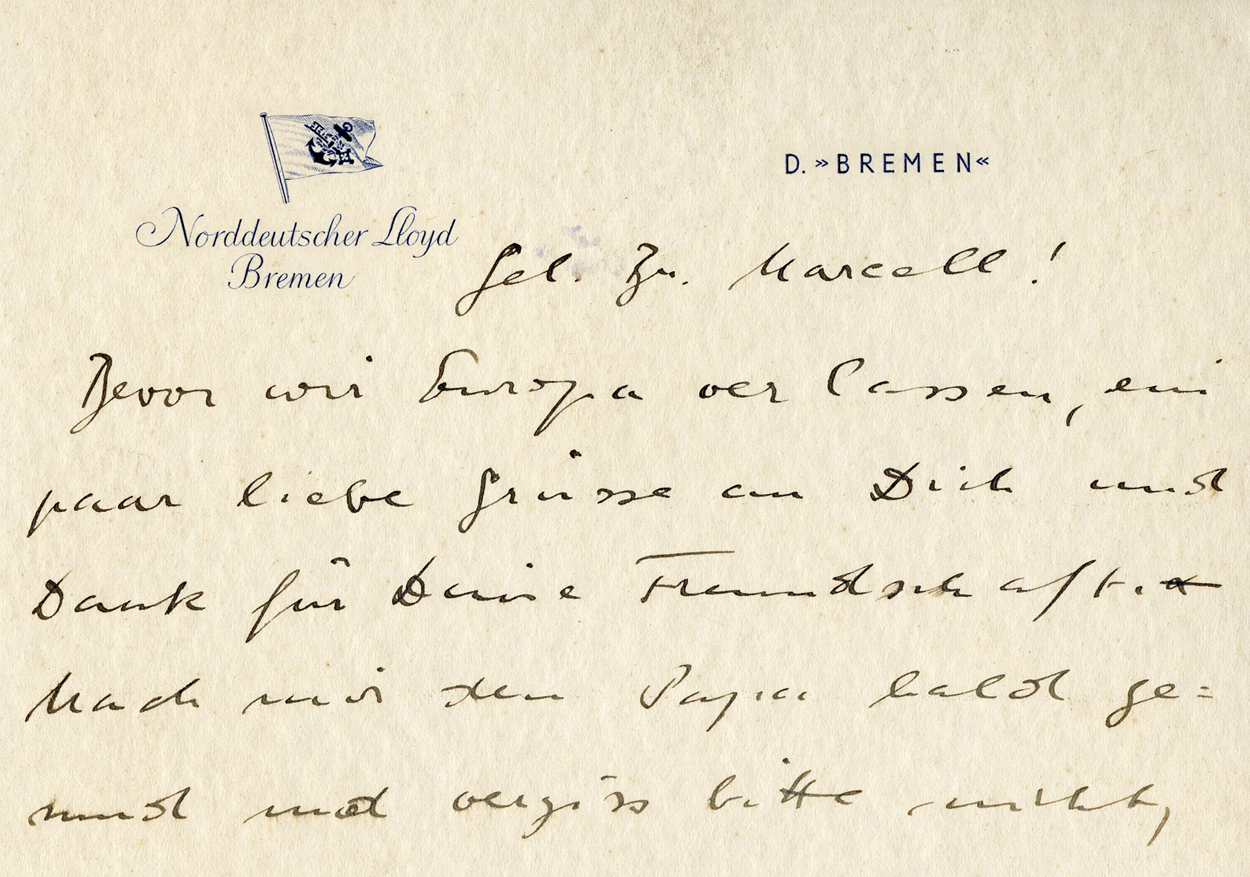 D. »BREMEN«
Norddeutscher Lloyd
Bremen
Gel. Br. Marcell!
Bevor wir Europa verlassen, ein
paar liebe Grüsse an Dich und
Dank für Deine Freundschaft.
Mach mir den Papa bald ge=
sund und vergiss bitte nicht,